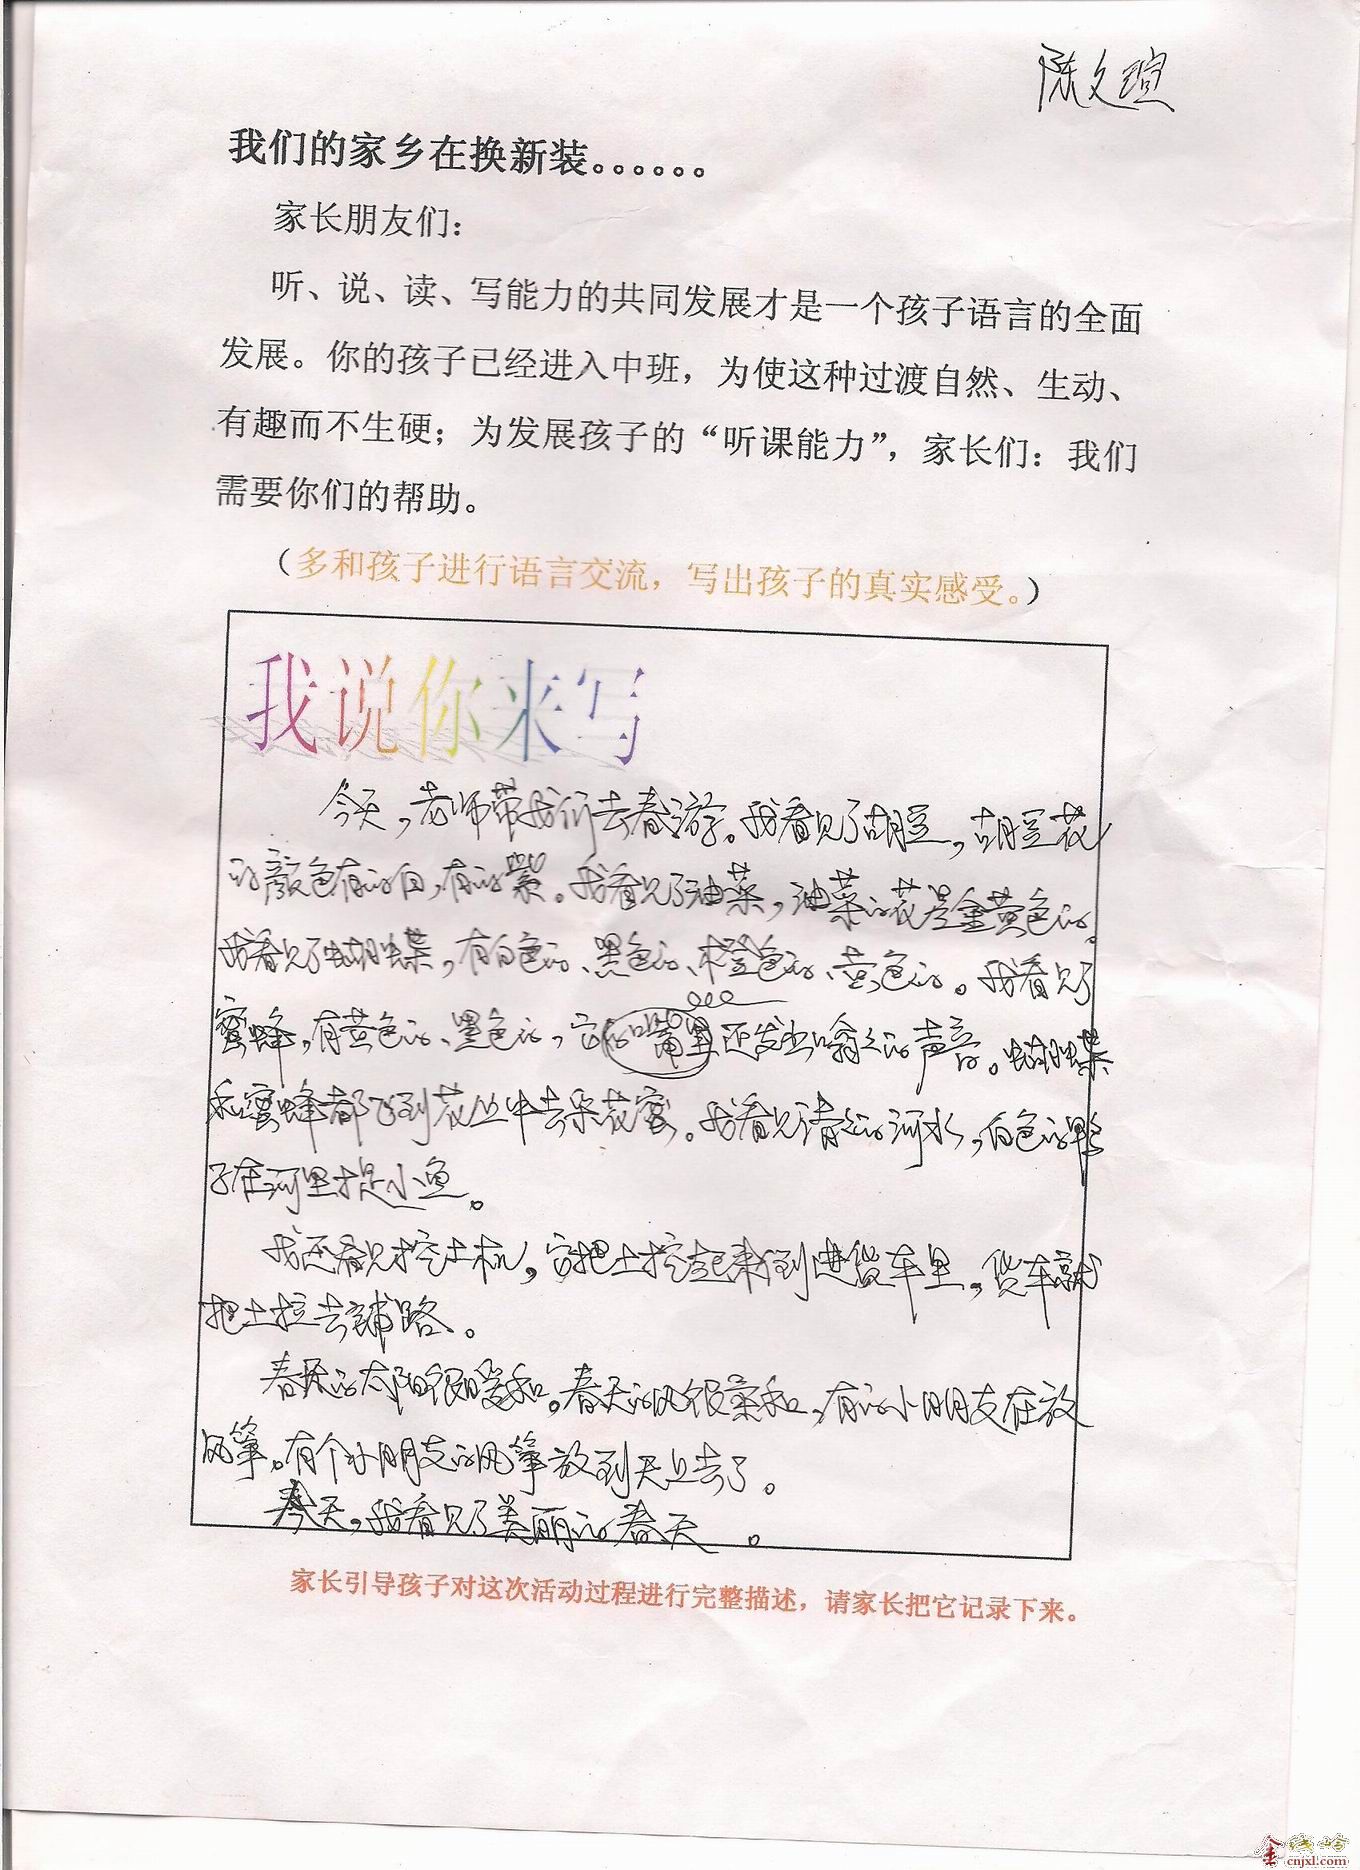 陈文瑄
我们的家乡在换新装。。。。。。
家长朋友们：
听、说、读、写能力的共同发展才是一个孩子语言的全面
发展。你的孩子已经进入中班，为使这种过渡自然、生动、
有趣而不生硬；为发展孩子的“听课能力”，家长们：我们
需要你们的帮助。
（多和孩子进行语言交流，写出孩子的真实感受。）
我说你来写
今天，老师带我们去春游。我看见了胡豆，胡豆花
的颜色有的白，有的紫。我看见了油菜，油菜的花是金黄色的。
我看见了蝴蝶，有白色的、黑色的、橙色的、黄色的。我看见了
蜜蜂，有黄色的、黑色的，它的嘴里还发出嗡嗡的声音。蝴蝶
和蜜蜂都飞到花丛中去采花蜜。我看见清清的河水，白色的鸭
子在河里捉小鱼。
我还看见挖土机，它把土挖起来倒进货车里，货车就
把土拉去铺路。
春天的太阳很暖和。春天的风很柔和，有的小朋友在放
风筝。有个小朋友的风筝放到天上去了。
春天，我看见了美丽的春天。
家长引导孩子对这次活动过程进行完整描述，请家长把它记录下来。
cnjxl.com